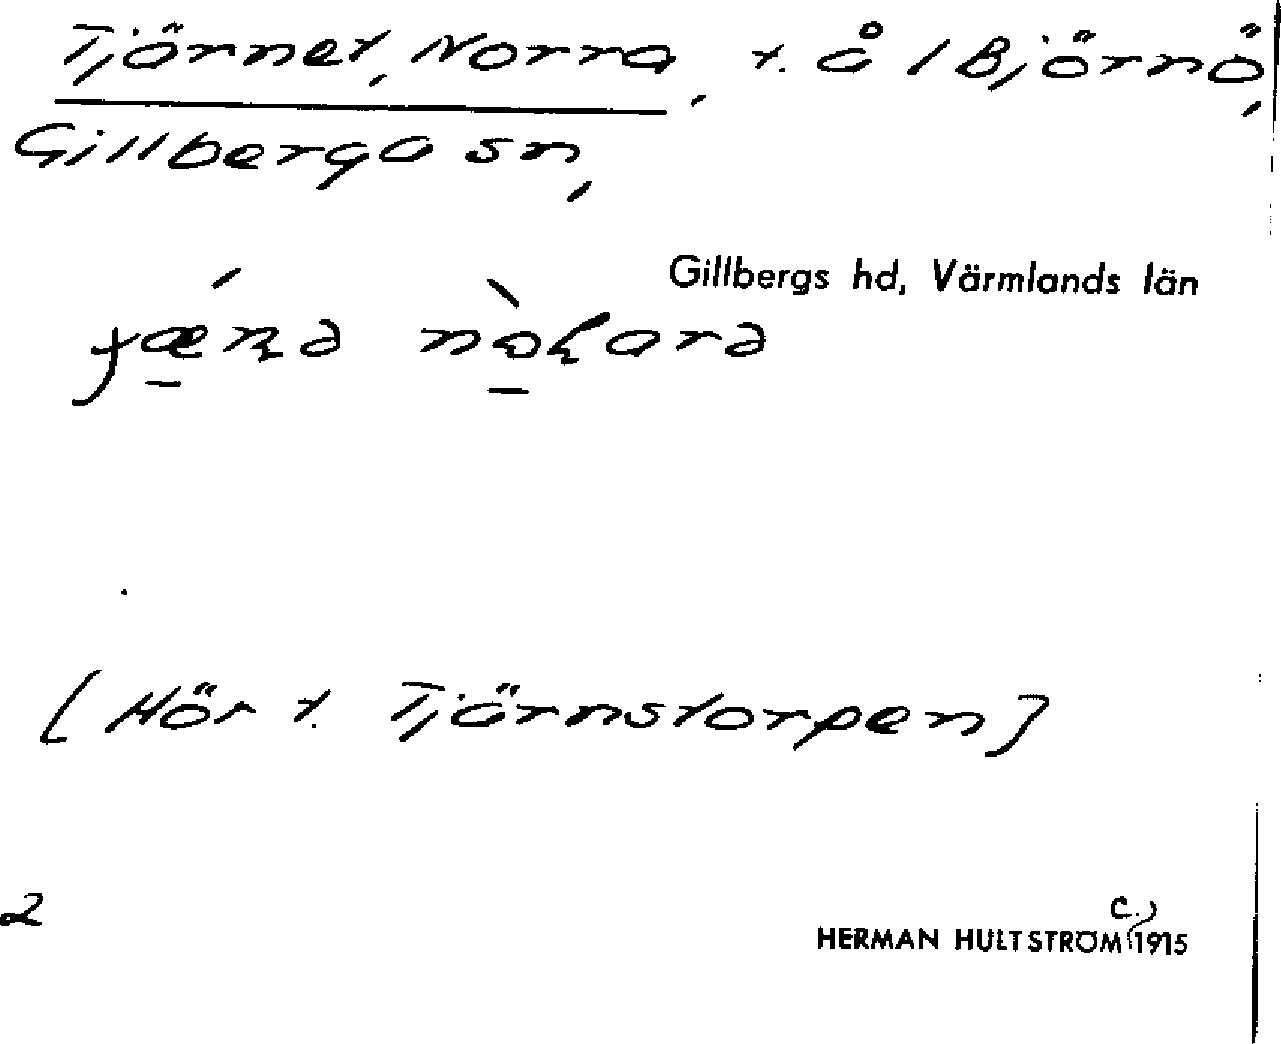 Tjärnet, Norra, t. å 1 Björnö,
Gillberga sn,
Gillbergs hd, Värmlands län
[Hör t. Tjärnstorpen]
2
c.
HERMAN HULTSTRÖM 1915